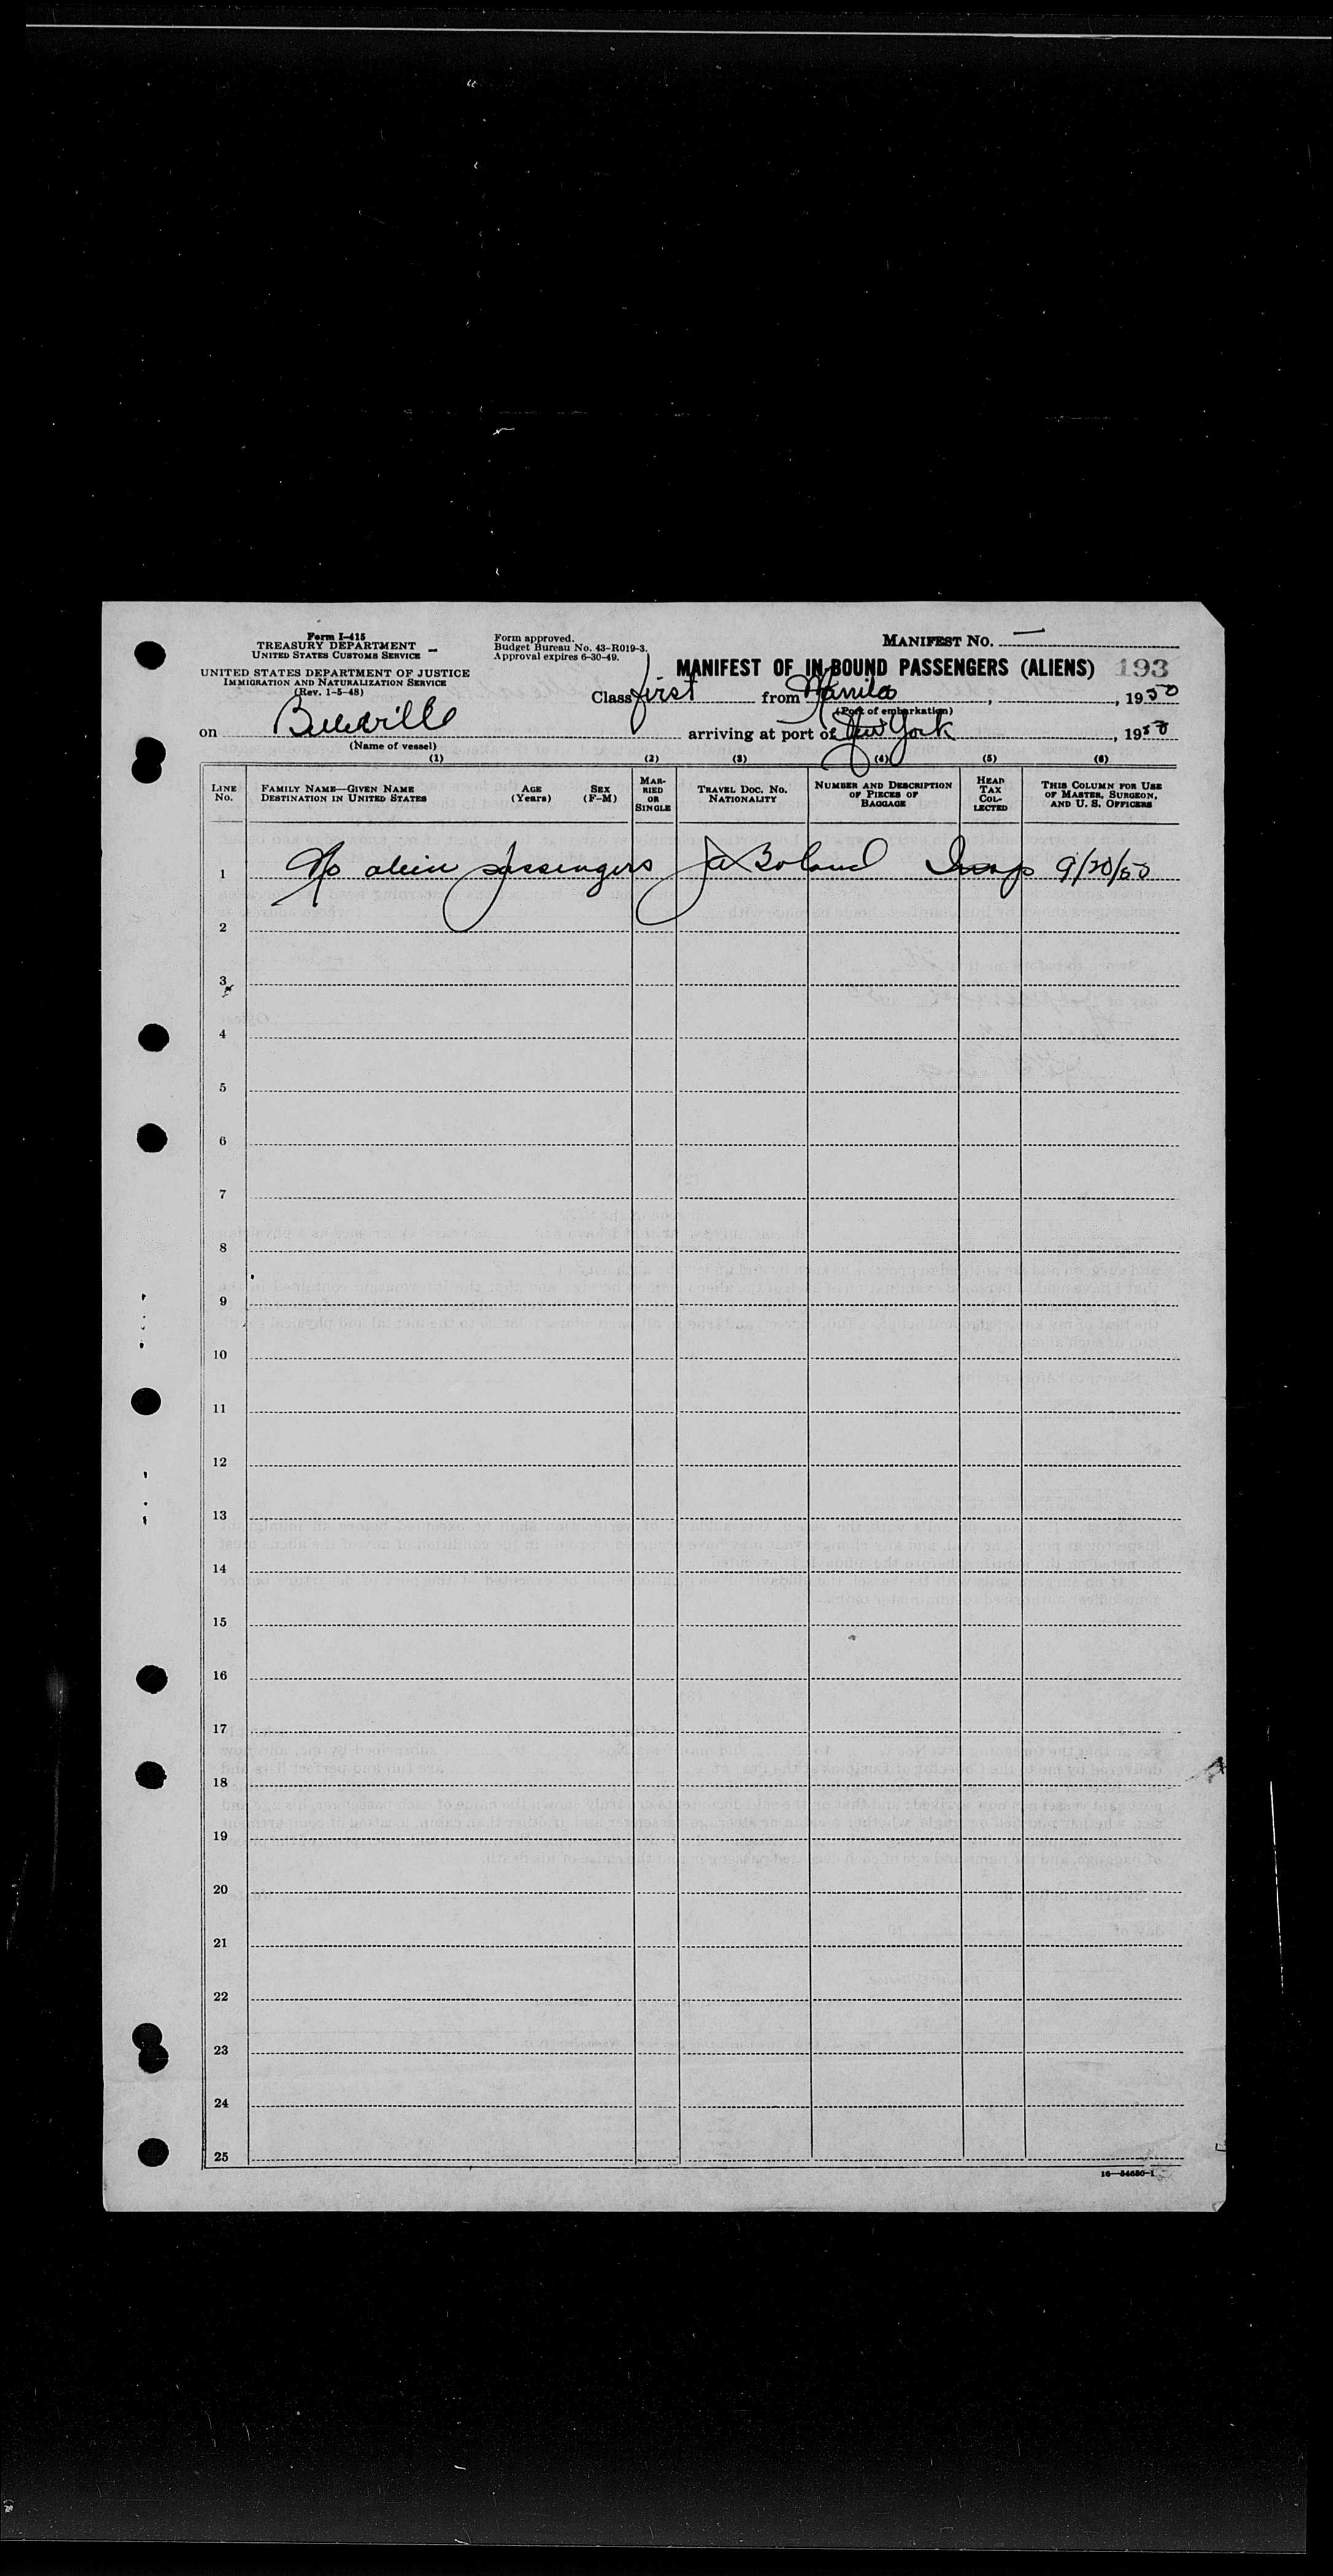 Form I-415
TREASURY DEPARTMENT
UNITED STATES CUSTOMS SERVICE
UNITED STATES DEPARTMENT OF JUSTICE
IMMIGRATION AND NATURALIZATION SERVICE
(Rev. 1-5-48)
Form approved.
Budget Bureau No. 43-R019-3.
Approval expires 6-30-49.
MANIFEST NO.
MANIFEST OF IN-BOUND PASSENGERS (ALIENS) 193
Class first from Manila, , 1950
(Port of embarkation)
on Belleville arriving at port of New York, 1950
(Name of vessel)
(1) (2) (3) (4) (5) (6)
LINE No. FAMILY NAME—GIVEN NAME DESTINATION IN UNITED STATES AGE (Years) SEX (F-M) MARRIED OR SINGLE TRAVEL DOC. NO. NATIONALITY NUMBER AND DESCRIPTION OF PIECES OF BAGGAGE HEAD TAX COLLECTED THIS COLUMN FOR USE OF MASTER, SURGEON, AND U. S. OFFICERS
1 No alien passengers Boland Insp 9/20/50
2
3
4
5
6
7
8
9
10
11
12
13
14
15
16
17
18
19
20
21
22
23
24
25
16—54650-1